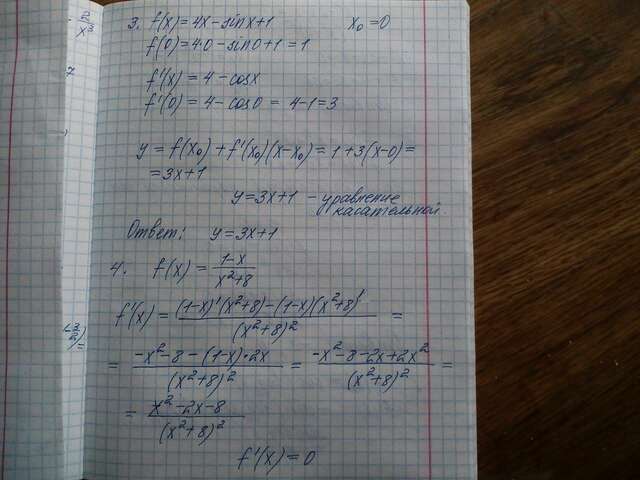 2/x³
7
3. f(x) = 4x - sin x + 1 x₀ = 0
f(0) = 4·0 - sin 0 + 1 = 1
f'(x) = 4 - cos x
f'(0) = 4 - cos 0 = 4 - 1 = 3
y = f(x₀) + f'(x₀)(x - x₀) = 1 + 3(x - 0) =
= 3x + 1
y = 3x + 1 - уравнение
касательной.
Ответ: y = 3x + 1
4. f(x) = (1-x)/(x²+8)
f'(x) = ((1-x)'(x²+8) - (1-x)(x²+8)')/(x²+8)² =
= (-x² - 8 - (1-x)·2x)/(x²+8)² = (-x² - 8 - 2x + 2x²)/(x²+8)² =
= (x² - 2x - 8)/(x²+8)²
f'(x) = 0